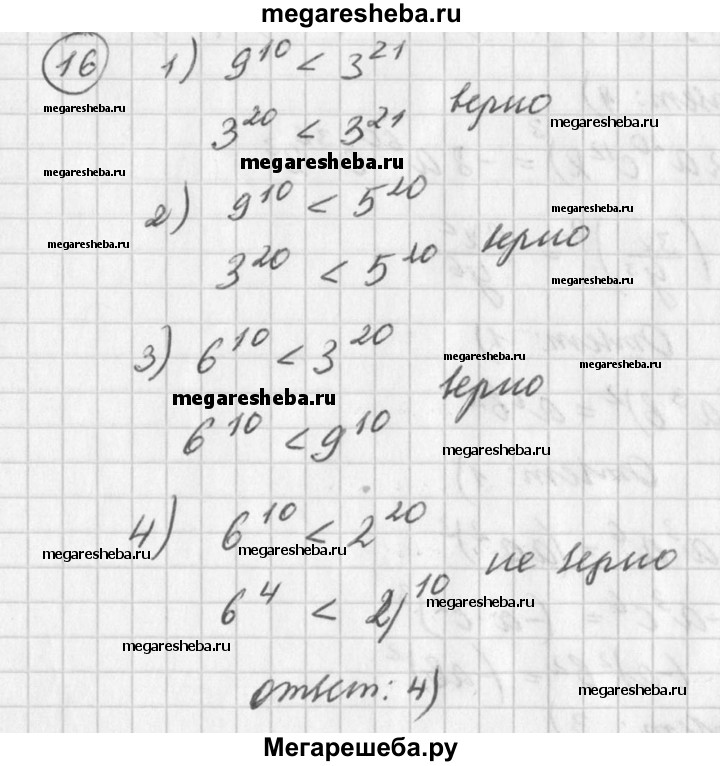 megaresheba.ru
16 1) 9^10 < 3^21
megaresheba.ru
3^20 < 3^21 верно
megaresheba.ru
megaresheba.ru
megaresheba.ru
2) 9^10 < 5^20
megaresheba.ru
megaresheba.ru
3^20 < 5^20 верно
megaresheba.ru
3) 6^10 < 3^20
megaresheba.ru
megaresheba.ru
megaresheba.ru
верно
6^10 < 9^10
megaresheba.ru
4) 6^10 < 2^20
megaresheba.ru
megaresheba.ru
не верно
megaresheba.ru
megaresheba.ru
ответ: 4)
megaresheba.ru
Мегарешеба.ру